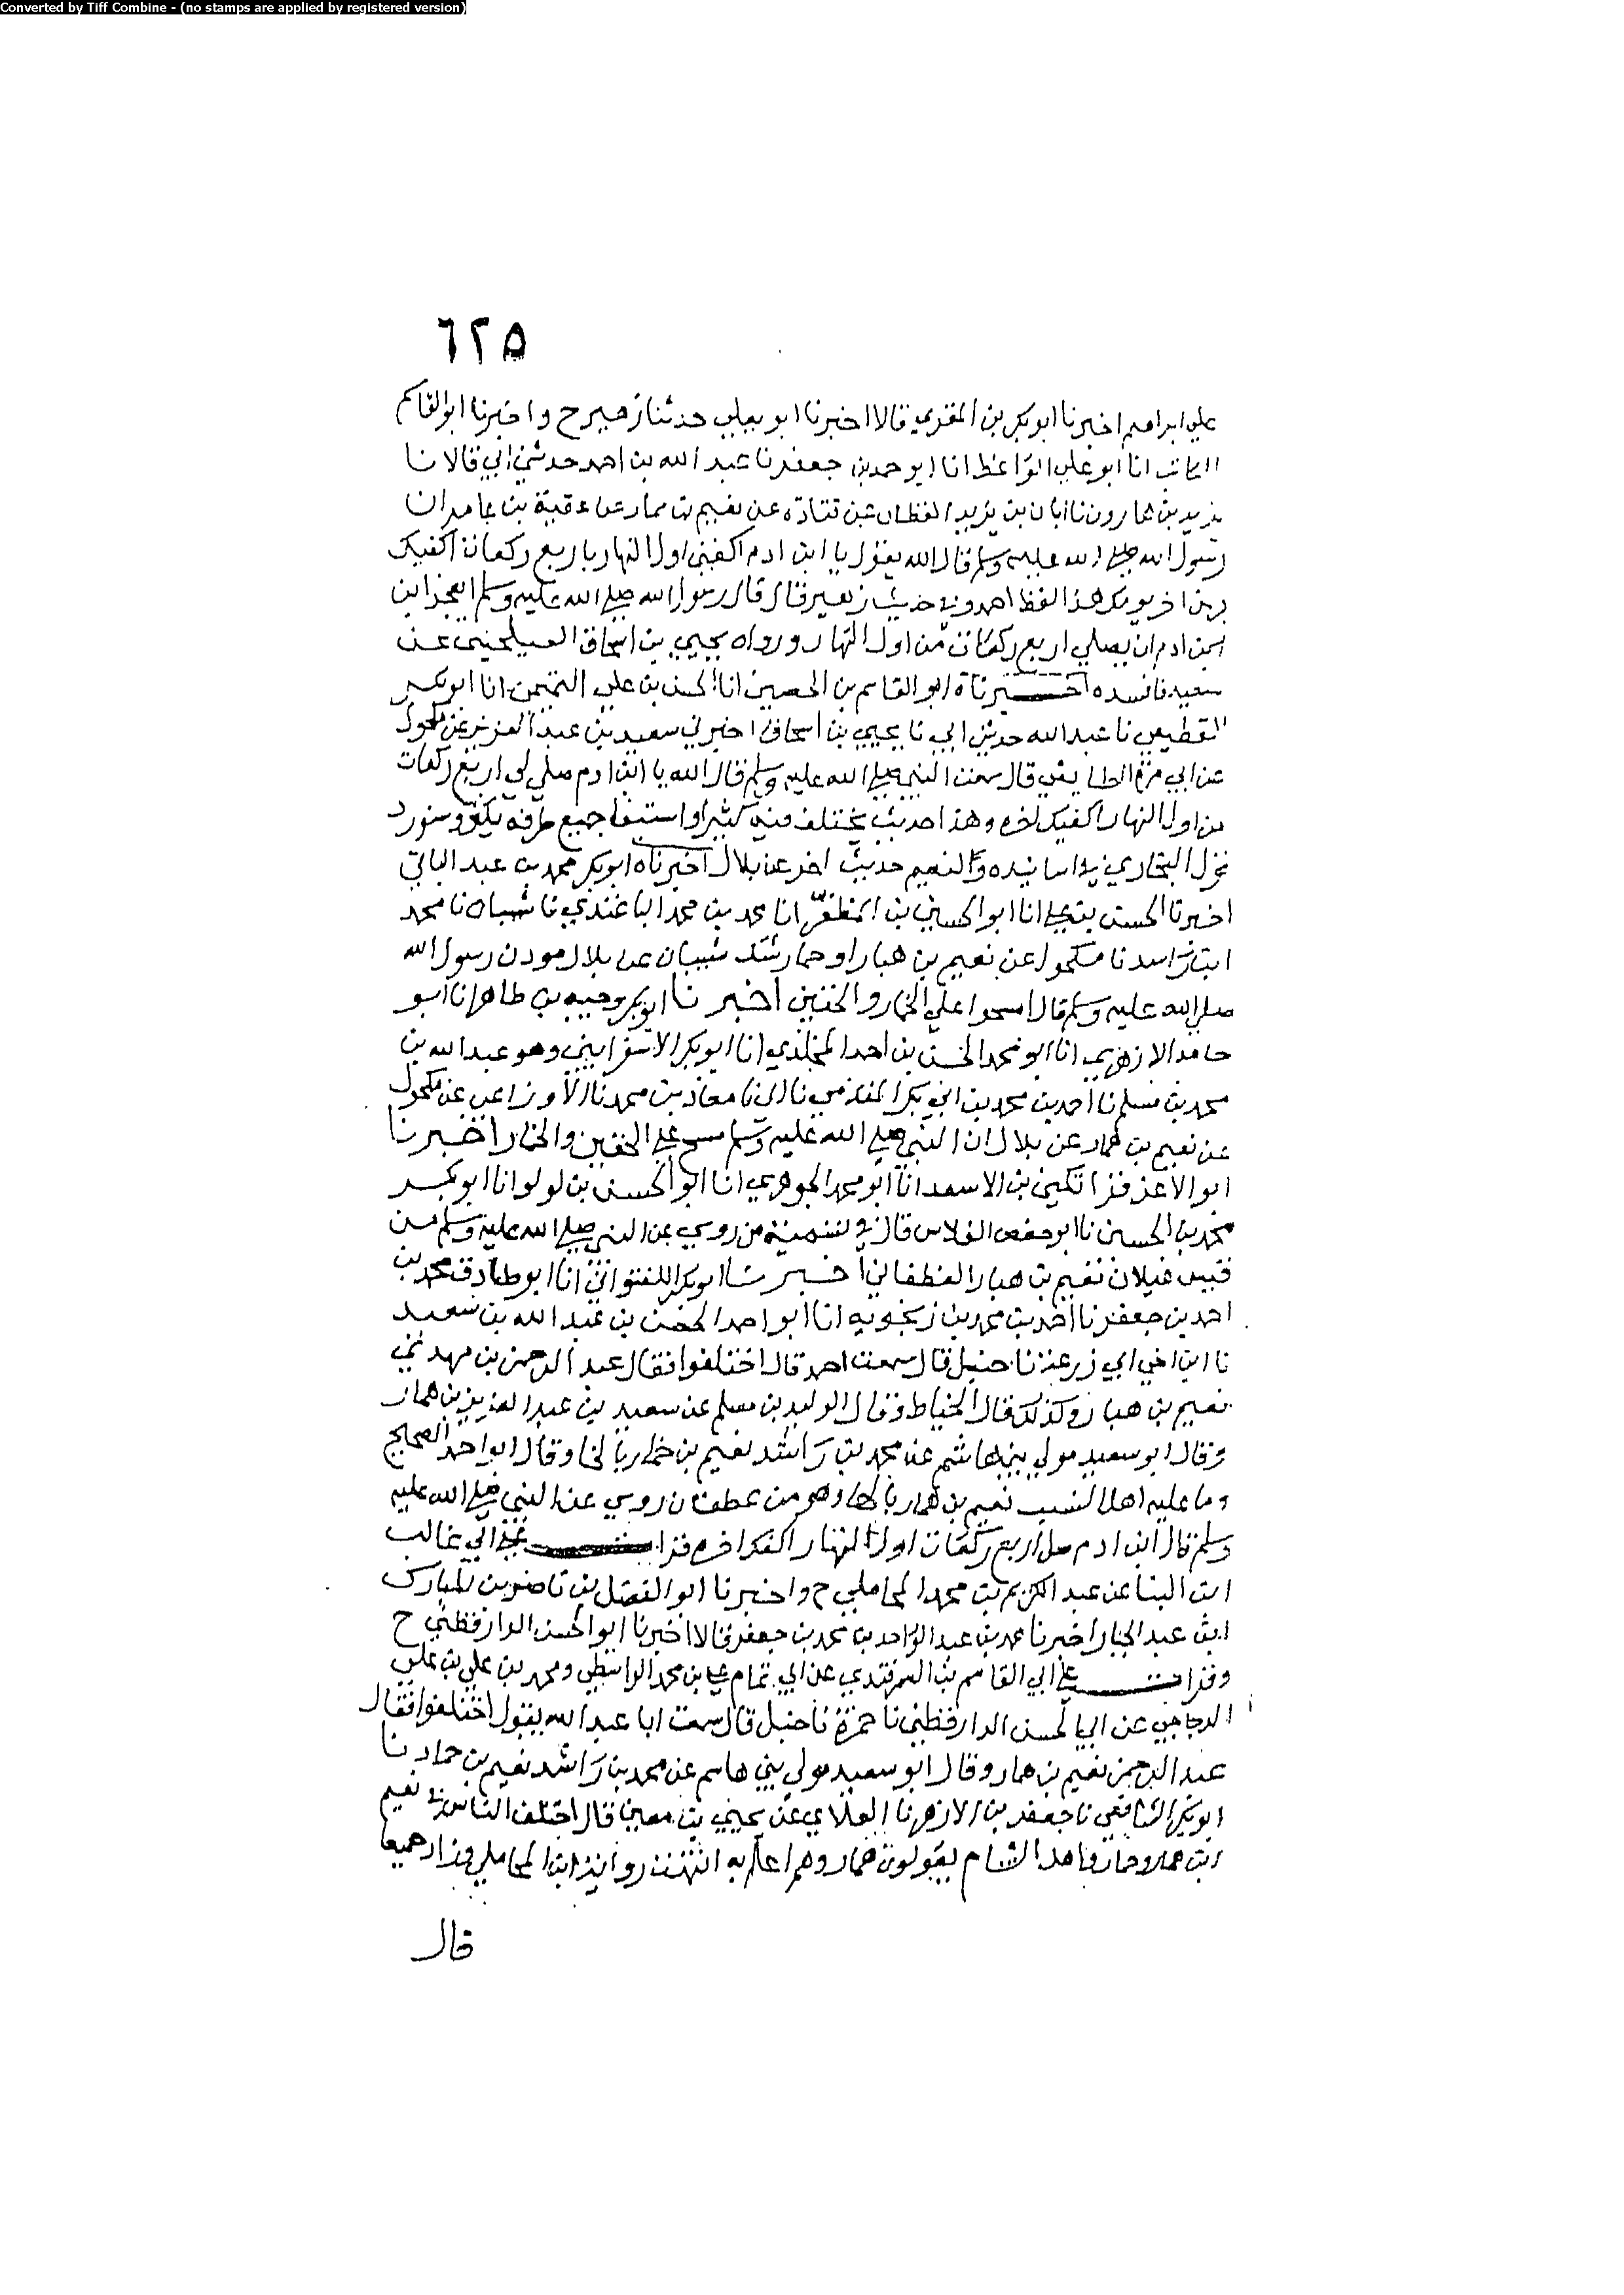 Converted by Tiff Combine - (no stamps are applied by registered version)
٦٢٥
علي ابراهيم اخبرنا ابو بكر بن المقري قالا اخبرنا ابو يعلي حدثنا زهير ح واخبرنا ابو القاسم
الكاتب انا ابو علي الواعظ انا ابو حمد بن جعفر نا عبد الله بن احمد حدثني ابي قالا نا
يزيد بن هارون نا ابان بن يزيد العطار عن قتادة عن نعيم بن همار عن عقبة بن عامر ان
رسول الله صلي الله عليه وسلم قال الله يقول يا ابن ادم اكفني اول النهار باربع ركعات اكفيك
بهن اخر يومك هذا لفظ احمد وفي حديث زهير قال قال رسول الله صلي الله عليه وسلم ايعجز ابن
ابن ادم ان يصلي اربع ركعات من اول النهار ورواه يحيي بن اسحاق السيلحيني عن
سعيد فافسده اخبرناه ابو القاسم بن الحصين انا الحسن بن علي التميمي انا ابو بكر
القطيعي نا عبد الله حدثني ابي نا يحيي بن اسحاق اخبرني سعيد بن عبد العزيز عن مكحول
عن ابي مرة الطايفي قال سمعت النبي صلي الله عليه وسلم قال الله يا ابن ادم صلي لي اربع ركعات
من اول النهار اكفيك اخره وهذا حديث يختلف فيه كثيرا واستيفا جميع طرقه يكثر وسنورد
قول البخاري في اسانيده ولنعيم حديث اخر عن بلال اخبرناه ابو بكر محمد بن عبد الباقي
اخبرنا الحسن بن علي انا ابو الحسين بن المظفر انا محمد بن محمد الباغندي نا شيبان نا محمد
ابن راشد نا مكحول عن نعيم بن هبار او حمار شك شيبان عن بلال موذن رسول الله
صلي الله عليه وسلم قال امسحوا علي الخمار والخفين اخبرنا ابو بكر وجيه بن طاهر انا ابو
حامد الازهري انا ابو محمد الحسن بن احمد المخلدي انا ابو بكر الاسفرايني وهو عبد الله بن
محمد بن مسلم نا احمد بن محمد بن ابي بكر المقدمي نا ابي نا معاذ بن محمد نا الاوزاعي عن مكحول
عن نعيم بن همار عن بلال ان النبي صلي الله عليه وسلم مسح علي الخفين والخمار اخبرنا
ابو الاعز قراتكين بن الاسعد انا ابو محمد الجوهري انا ابو الحسن بن لولو انا ابو بكر
محمد بن الحسين نا ابو حفص الفلاس قال في تسمية من روي عن النبي صلي الله عليه وسلم من
قيس عيلان نعيم بن هبار الغطفاني اخبرنا ابو بكر اللفتواني انا ابو صادق محمد بن
احمد بن جعفر نا احمد بن محمد بن زنجويه انا ابو احمد الحسن بن عبد الله بن سعيد
نا ابن اخي ابي زرعة نا حنبل قال سمعت احمد قال اختلفوا فقال عبد الرحمن بن مهدي
نعيم بن هبار وكذلك قال الخياط وقال الوليد بن مسلم عن سعيد بن عبد العزيز بن همار
وقال ابو سعيد مولي بني هاشم عن محمد بن راشد نعيم بن خمار بالخا وقال ابو احمد الصحيح
وما عليه اهل النسب نعيم بن همار بالها وهو من غطفان روي عن النبي صلي الله عليه
وسلم قال ابن ادم صل اربع ركعات اول النهار اكفك اخره قرات علي ابي غالب
ابن البنا عن عبد الكريم بن محمد المحاملي ح واخبرنا ابو الفضل بن ناصر بن المبارك
ابن عبد الجبار اخبرنا محمد بن عبد الواحد بن محمد بن جعفر قالا اخبرنا ابو الحسن الدارقطني ح
وقرات علي ابي القاسم بن السمرقندي عن ابي تمام علي بن محمد الواسطي ومحمد بن علي بن علي
الدجاجي عن ابي الحسن الدارقطني نا حمزة نا حنبل قال سمعت ابا عبد الله يقول اختلفوا فقال
عبد الرحمن نعيم بن همار وقال ابو سعيد مولي بني هاسم عن محمد بن راشد نعيم بن حماد نا
ابو بكر الشافعي نا جعفر بن الازهر نا الغلابي عن يحيي بن معين قال اختلف الناس في نعيم
ابن همار وحمار واهل الشام يقولون همار وهم اعلم به انتهت رواية ابن المحاملي وزاد جميعا
قال